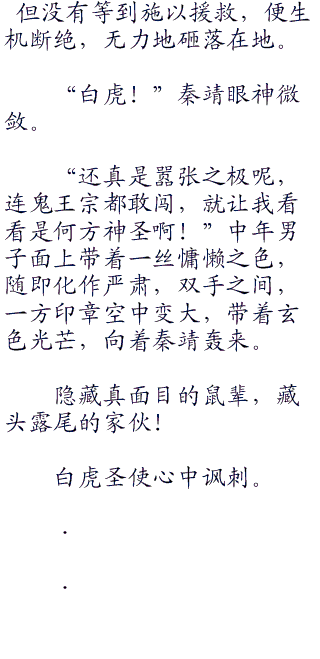 但没有等到施以援救，便生
机断绝，无力地砸落在地。
“白虎！”秦靖眼神微
敛。
“还真是嚣张之极呢，
连鬼王宗都敢闯，就让我看
看是何方神圣啊！”中年男
子面上带着一丝慵懒之色，
随即化作严肃，双手之间，
一方印章空中变大，带着玄
色光芒，向着秦靖轰来。
隐藏真面目的鼠辈，藏
头露尾的家伙！
白虎圣使心中讽刺。
.
.